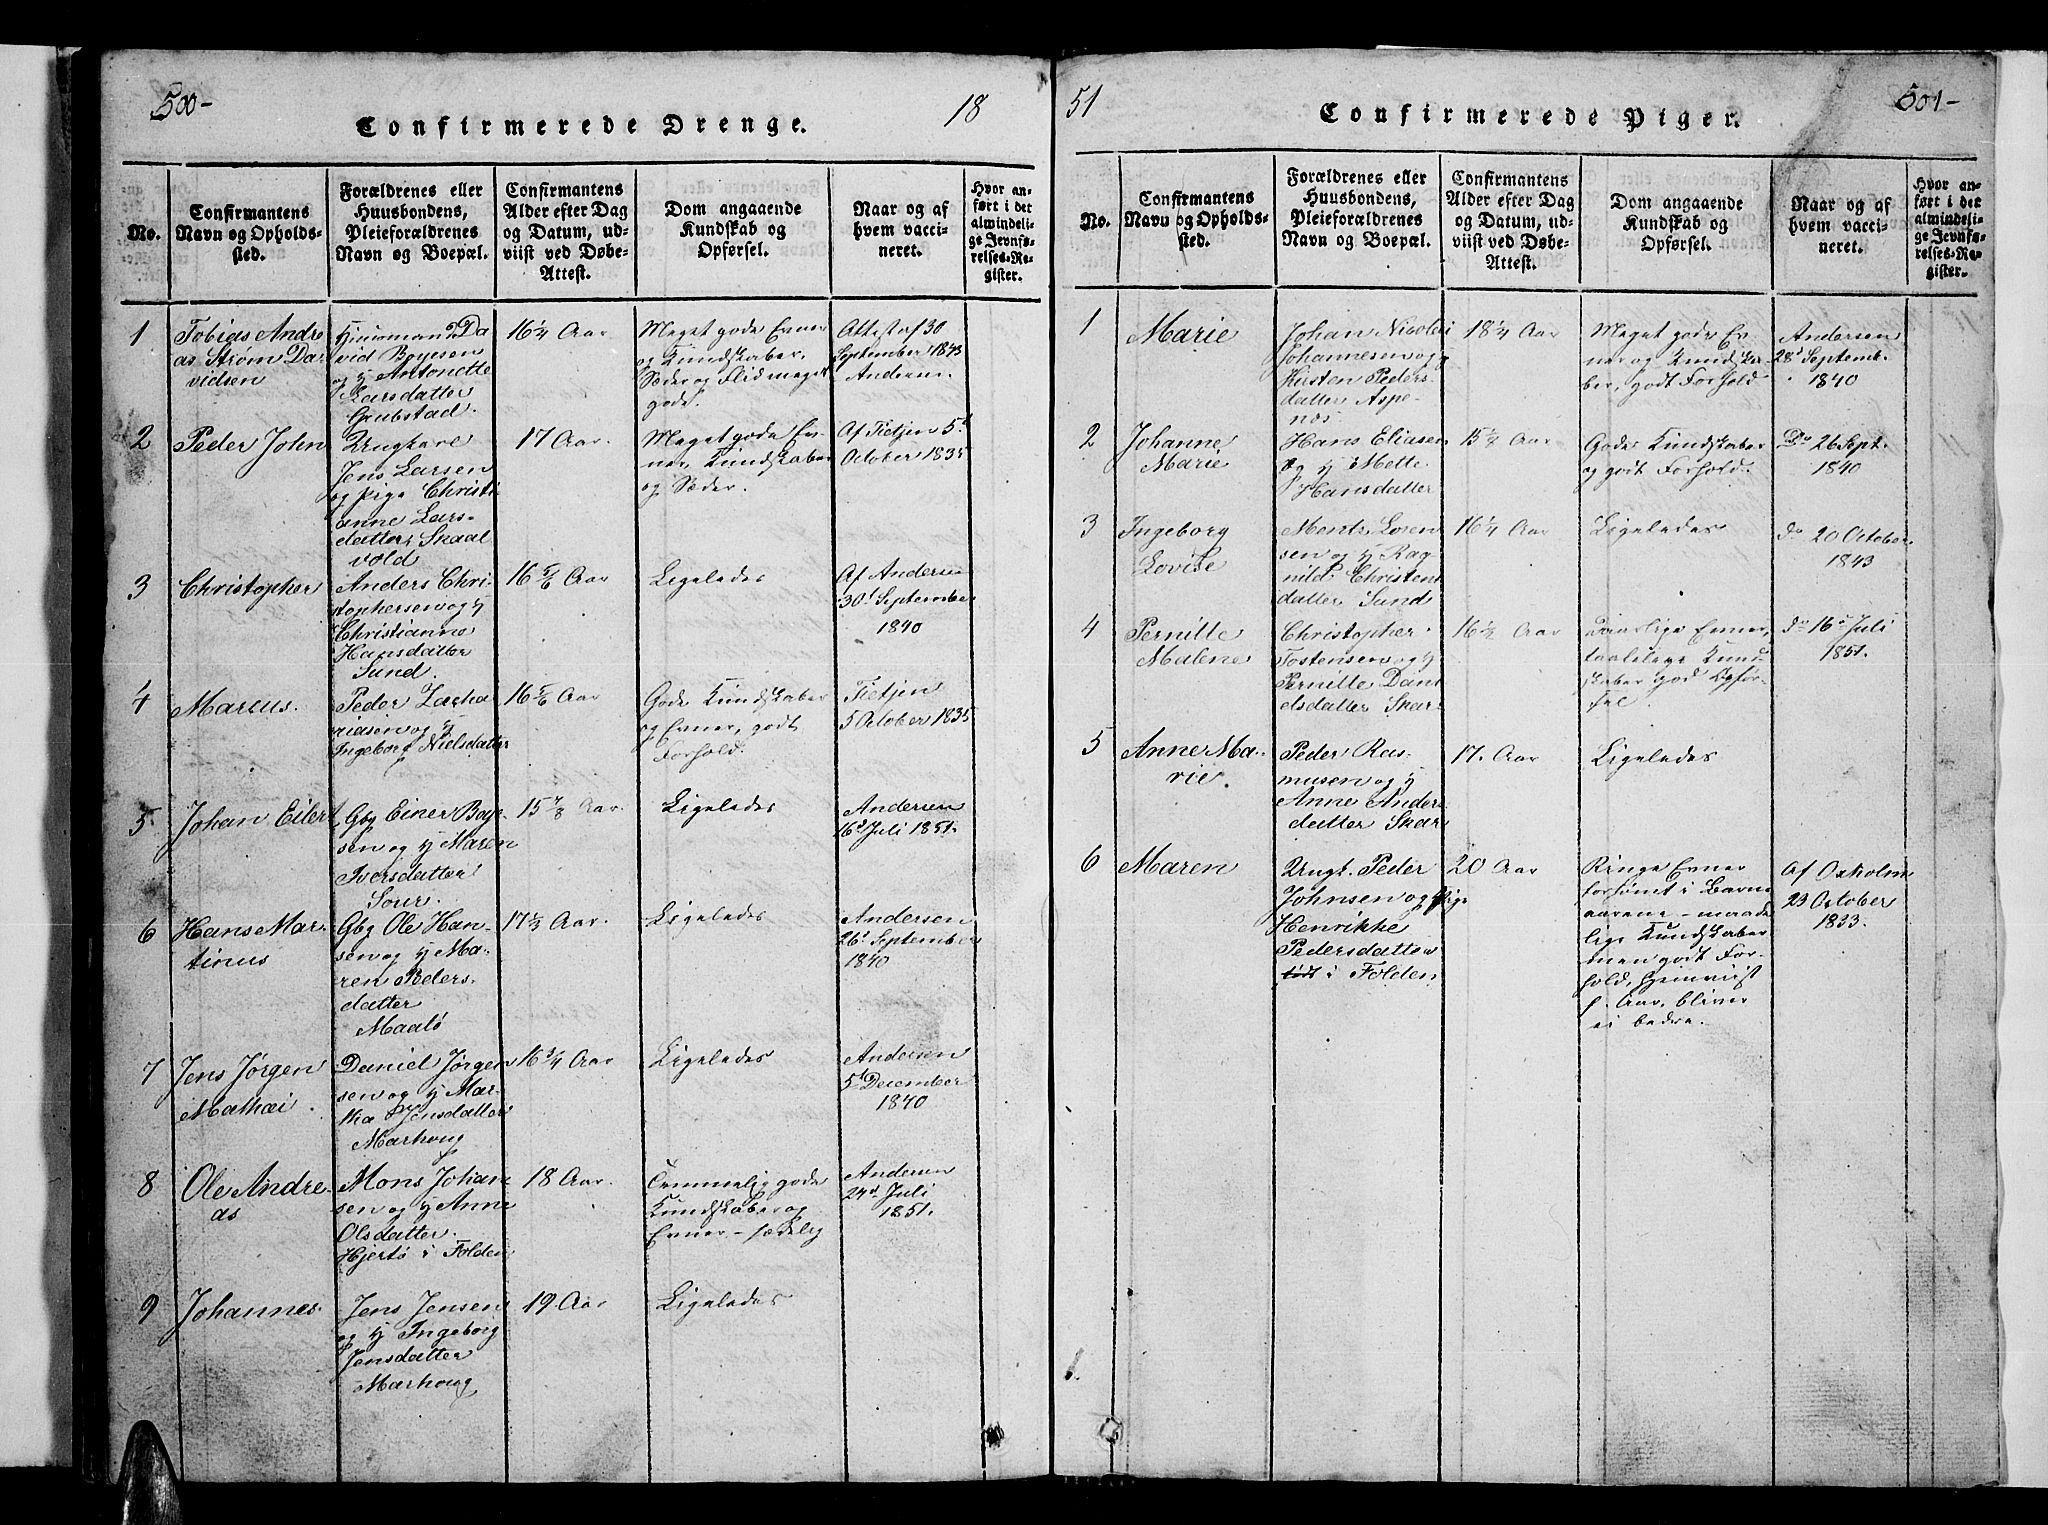 500-
Confirmerede Drenge.
18
No.
Confirmantens
Navn og Opholds-
sted.
Forældrenes eller
Huusbondens,
Pleieforældrenes
Navn og Boepæl.
Confirmantens
Alder efter Dag
og Datum, ud-
viist ved Døbe-
Attest.
Dom angaaende
Kundskab og
Opførsel.
Naar og af
hvem vacci-
neret.
Hvor an-
ført i det
almindeli-
ge Jevnfø-
relses-Re-
gister.
1
Tobias Andre
as Strøm Da-
vidsen
Huusmand Da
vid Boyesen
og H Antonette
Larsdatter
Grubstad.
16 1/4 Aar
Meget gode Evner
og Kundskaber,
Sæder og Flid meget
gode.
Attest af 30
September 1843
Andersen.
2
Peder John
Ungkarl
Jens Larsen
og Pige Christi-
anne Lars-
datter Skaal
vold
17 Aar.
Meget gode Ev-
ner, Kundskaber
og Sæder.
Af Tietjen 5t
October 1835
3
Christopher
Anders Chri-
stophersen og H
Christianna
Hansdatter
Sund.
16 5/6 Aar
Ligeledes
Af Andersen
30t September
1840
4
Marcus.
Peder Zacha
riasen og H
Ingeborg Nielsdatter
16 5/6 Aar
Gode Kundskaber
og Evner, godt
Forhold.
Tietjen
5 October 1835
5
Johan Eilert
Gbr Einer Boye
sen og H Maren
Iversdatter
15 7/8 Aar.
Ligeledes
Andersen
16d Juli 1851.
6
Hans Mar-
tinus
Gbr Ole Han-
sen og H Ma-
ren Peders-
datter
Maalø
17 1/2 Aar.
Ligeledes
Andersen
26t September
1840
7
Jens Jørgen
Mathæi.
Daniel Jørgen
sen og H Mar-
tha Jensdatter
Marhoug
16 3/4 Aar
Ligeledes
Andersen
5t December
1840
8
Ole Andre-
as
Mons Johan
sen og H Anne
Olsdatter
Hjertø i Folden
18 Aar.
Temmelig gode
Kundskaber og
Evner - sædelig
Andersen
24d Juli
1851.
9
Johannes.
Jens Jensen
og H Ingeborg
Jensdatter
Marhoug
19 Aar
Ligeledes
51
Confirmerede Piger.
501-
No.
Confirmantens
Navn og Opholds-
sted.
Forældrenes eller
Huusbondens,
Pleieforældrenes
Navn og Boepæl.
Confirmantens
Alder efter Dag
og Datum, ud-
viist ved Døbe-
Attest.
Dom angaaende
Kundskab og
Opførsel.
Naar og af
hvem vacci-
neret.
Hvor an-
ført i det
almindeli-
ge Jevnfø-
relses-Re-
gister.
1
Marie
Johan Nicolai
Johannesen og
Kirsten Peders
datter Aspe-
næs
18 1/4 Aar
Meget gode Ev-
ner og Kundska-
ber, godt Forhold
Andersen
28d Septemb.
1840
2
Johanne
Marie
Hans Eliasen
og H Mette
Hansdatter
15 1/4 Aar
Gode Kundskaber
og godt Forhold.
Do 26 Sept.
1840
3
Ingeborg
Lovise
Mentz Loren
sen og H Rag
nild Christens
datter Sund
16 1/4 Aar
Ligeledes
do 20 October.
1843
4
Pernille
Malene
Christopher
Tostensen og H
Pernille Dani
elsdatter Skar
16 1/2 Aar
daarlige Evner,
taalelige Kund-
skaber god Opfør-
sel
do 16d Juli
1851.
5
Anne Ma-
rie.
Peder Ras-
musen og H
Anne Anders
datter Skar
17. Aar
Ligeledes
6
Maren
Ungk. Peder
Johnsen og Pige
Henrikke
Pedersdatter
i Folden
20 Aar
Ringe Evner
forsømt i Barne
aarene - maade
lige Kundskaber
men godt For-
hold, hjemviist
f. Aar, bliver
ei bedre.
Af Oxholm
23 October
1833.